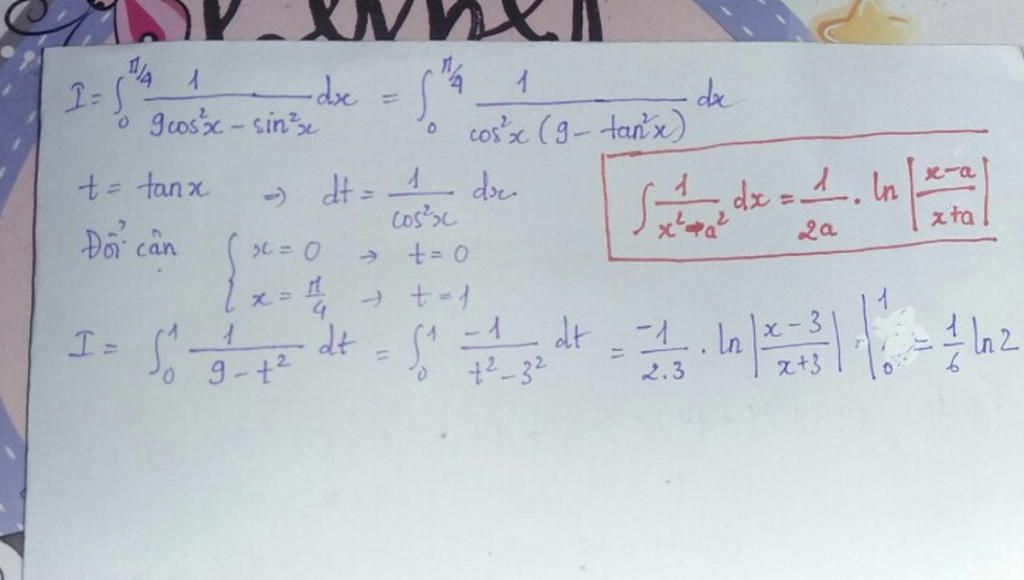 I = ∫₀^{π/4} 1/(9cos²x − sin²x) dx = ∫₀^{π/4} 1/(cos²x (9 − tan²x)) dx
t = tanx ⇒ dt = 1/cos²x dx.
∫ 1/(x² − a²) dx = 1/2a . ln |(x−a)/(x+a)|
Đổi cận { x = 0 → t = 0
x = π/4 → t = 1
I = ∫₀¹ 1/(9 − t²) dt = ∫₀¹ −1/(t² − 3²) dt = −1/2.3 . ln |(x − 3)/(x + 3)| |₀¹ = 1/6 ln2